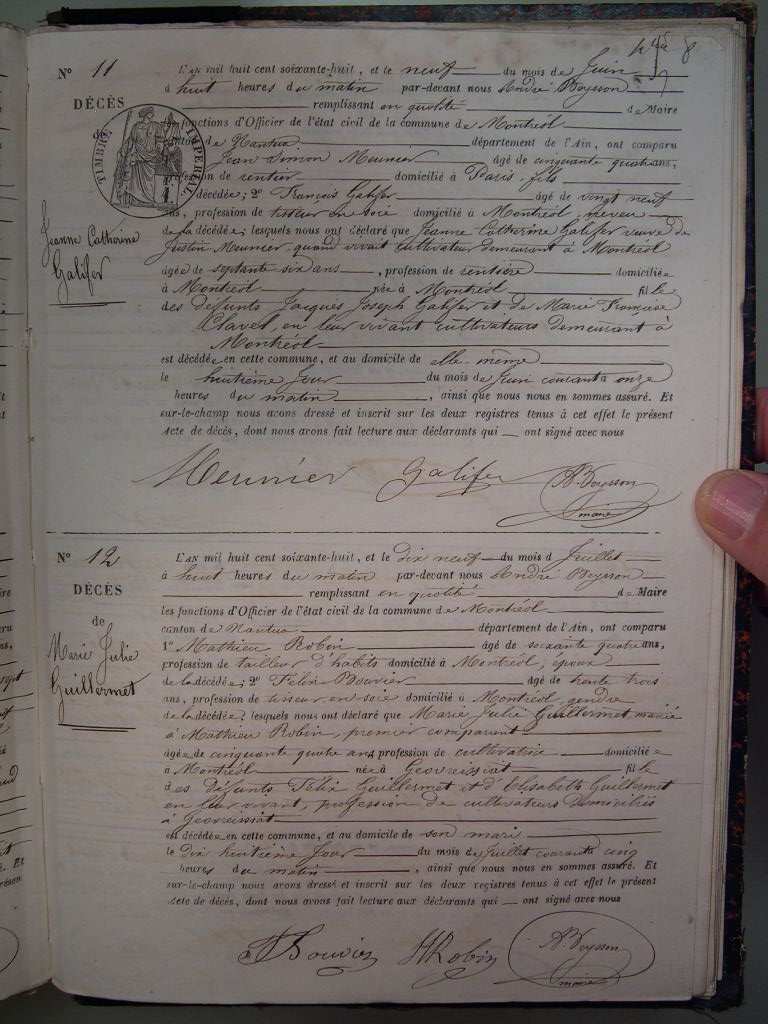 8
N° 11
DÉCÈS
de
TIMBRE IMPERIAL
Jeanne Catherine
Galifer
L'AN mil huit cent soixante-huit, et le neuf du mois de Juin
à huit heures du matin par-devant nous André Boysson
remplissant en qualité de Maire
les fonctions d'Officier de l'état civil de la commune de Montréal
canton de Nantua département de l'Ain, ont comparu
Jean Simon Meunier âgé de cinquante quatre ans,
profession de rentier domicilié à Paris, fils
décédée; 2° François Galifer âgé de vingt neuf
ans, profession de tisseur en soie domicilié à Montréal, neveu
de la décédée; lesquels nous ont déclaré que Jeanne Catherine Galifer veuve de
Justin Meunier, quand vivait cultivateur demeurant à Montréal
âgée de septante six ans, profession de rentière domiciliée
à Montréal née à Montréal fille
des defunts Jacques Joseph Galifer et de Marie Françoise
Clavel, en leur vivant cultivateurs demeurant à
Montréal
est décédée en cette commune, et au domicile de elle-même
le huitième jour du mois de Juin courant à onze
heures du matin, ainsi que nous nous en sommes assuré. Et
sur-le-champ nous avons dressé et inscrit sur les deux registres tenus à cet effet le présent
Acte de décès, dont nous avons fait lecture aux déclarants qui ont signé avec nous
Meunier Galifer A. Boysson
maire
N° 12
DÉCÈS
de
Marie Julie
Guillermet
L'AN mil huit cent soixante-huit, et le dix neuf du mois d Juillet
à huit heures du matin par-devant nous André Boysson
remplissant en qualité de Maire
les fonctions d'Officier de l'état civil de la commune de Montréal
canton de Nantua département de l'Ain, ont comparu
1° Mathieu Robin âgé de soixante quatre ans,
profession de tailleur d'habits domicilié à Montréal, époux
de la décédée; 2° Félix Bouvier âgé de trente trois
ans, profession de tisseur en soie domicilié à Montréal, gendre
de la décédée; lesquels nous ont déclaré que Marie Julie Guillermet mariée
à Mathieu Robin, premier comparant
âgée de cinquante quatre ans profession de cultivatrice domiciliée
à Montréal née à Geovreissiat fille
des défunts Félix Guillermet et d'Elisabeth Guillermet
en leur vivant, profession de cultivateurs domiciliés
à Geovreissiat
est décédée en cette commune, et au domicile de son mari
le dix huitième jour du mois de Juillet courant à cinq
heures du matin, ainsi que nous nous en sommes assuré. Et
sur-le-champ nous avons dressé et inscrit sur les deux registres tenus à cet effet le présent
Acte de décès, dont nous avons fait lecture aux déclarants qui ont signé avec nous
Bouvier Robin A. Boysson
maire